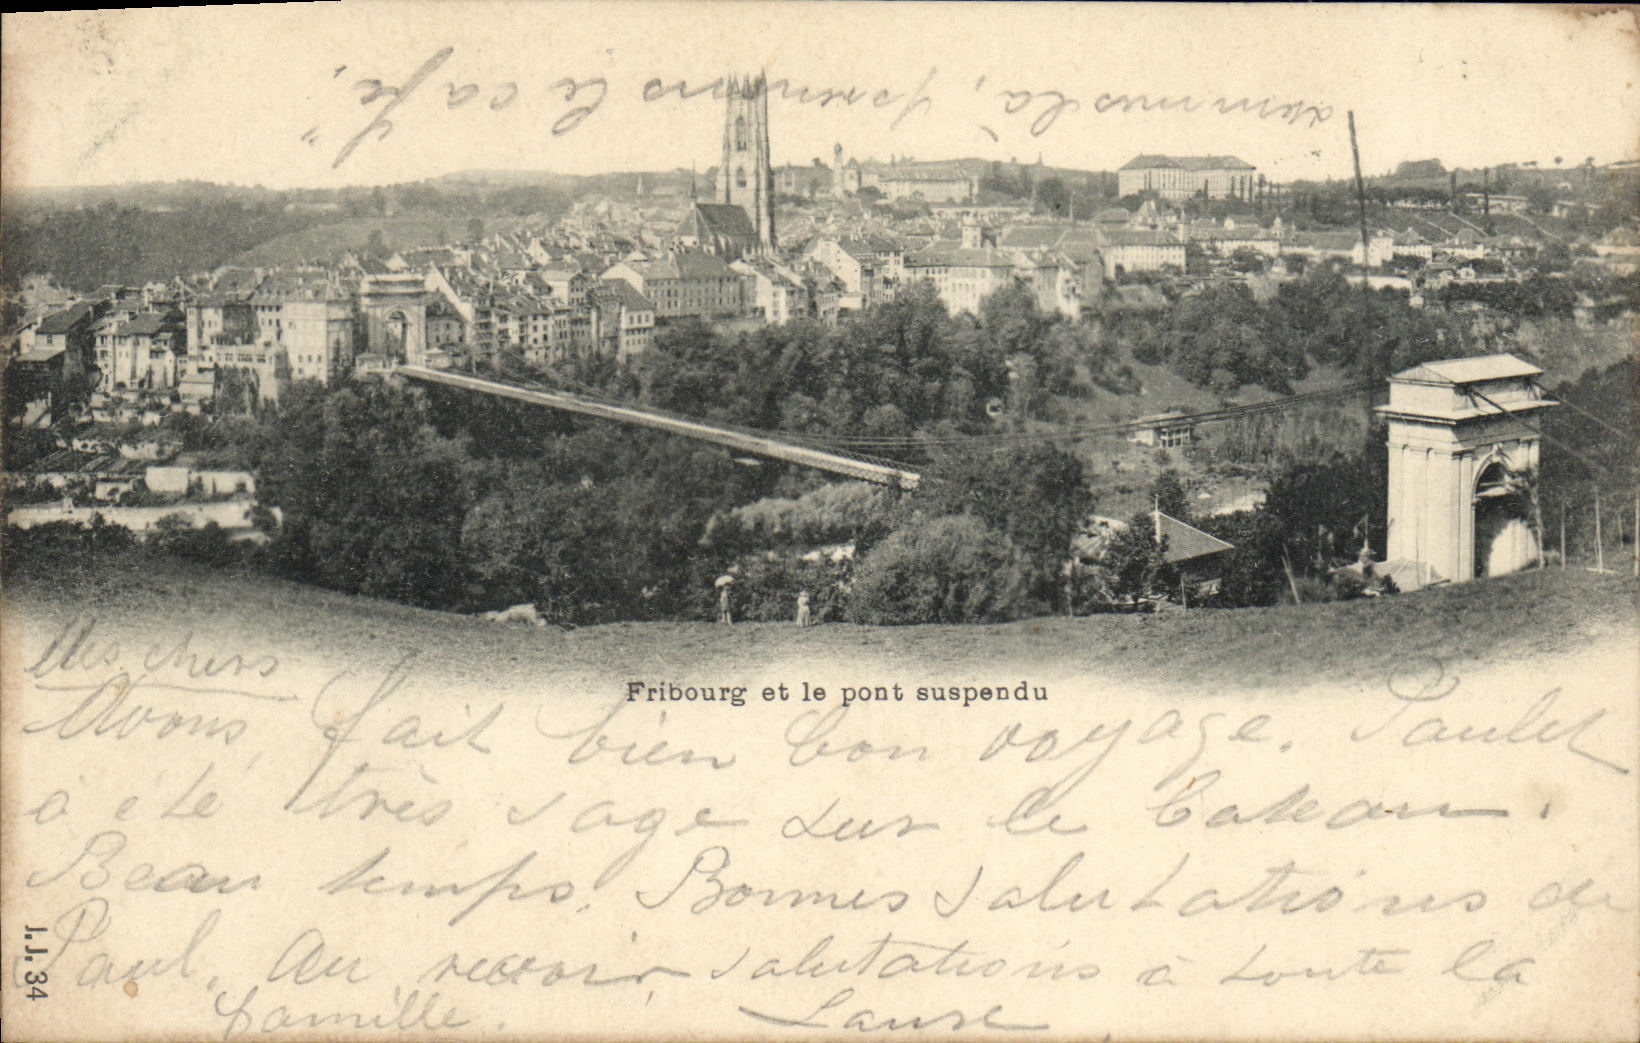 sommes là, prenons le café,
Fribourg et le pont suspendu
Mes chers
Avons fait bien bon voyage. Paulet
a été très sage sur le bateau.
Beau temps. Bonnes salutations de
Paul. Au revoir, salutations à toute la
famille. Laure
J.J. 34